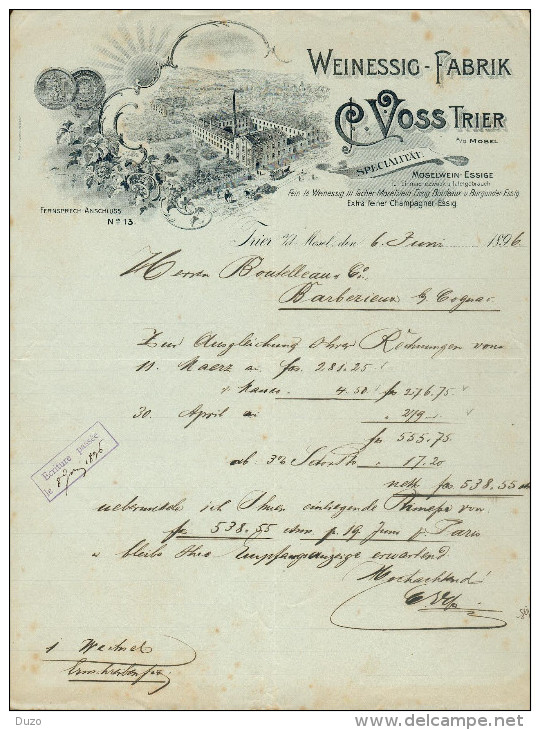 WEINESSIG-FABRIK
C. VOSS TRIER
A/D MOSEL
SPECIALITÄT
MOSELWEIN-ESSIGE
Extra feiner Champagner-Essig
FERNSPRECH ANSCHLUSS
Nº 13.
Trier a/d. Mosel, den 6. Juni 1896
Herren Boutelleau & Co.
Barbezieux b/ Cognac
Zur Ausgleichung Ihrer Rechnungen vom
11. Maerz a/ frs 281.25
4.50 frs 276.75
30. April a/ " 279.-
frs 555.75
ab 3% Sconto " 17.20
netto frs. 538.55
uebersende ich Ihnen einliegende Rimesse von
frs 538.55 p. 19 Juni s/ Paris
u bleibe Ihre Empfangsanzeige erwartend
Hochachtend
C Voss
Ecriture passée
le 8 Juin 1896
1 Wechsel
Einschreiben
Duzo
www.delcampe.net